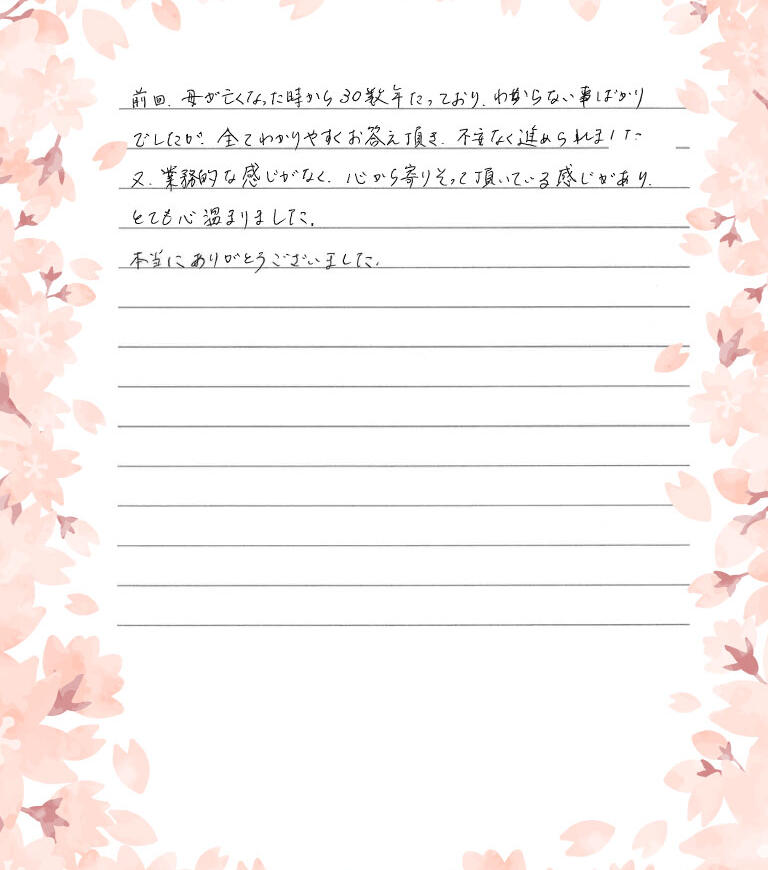 前回、母が亡くなった時から30数年たっており、わからない事ばかり
でしたが、全てわかりやすくお答え頂き、不安なく進められました
又、業務的な感じがなく、心から寄りそって頂いている感じがあり、
とても心温まりました。
本当にありがとうございました。